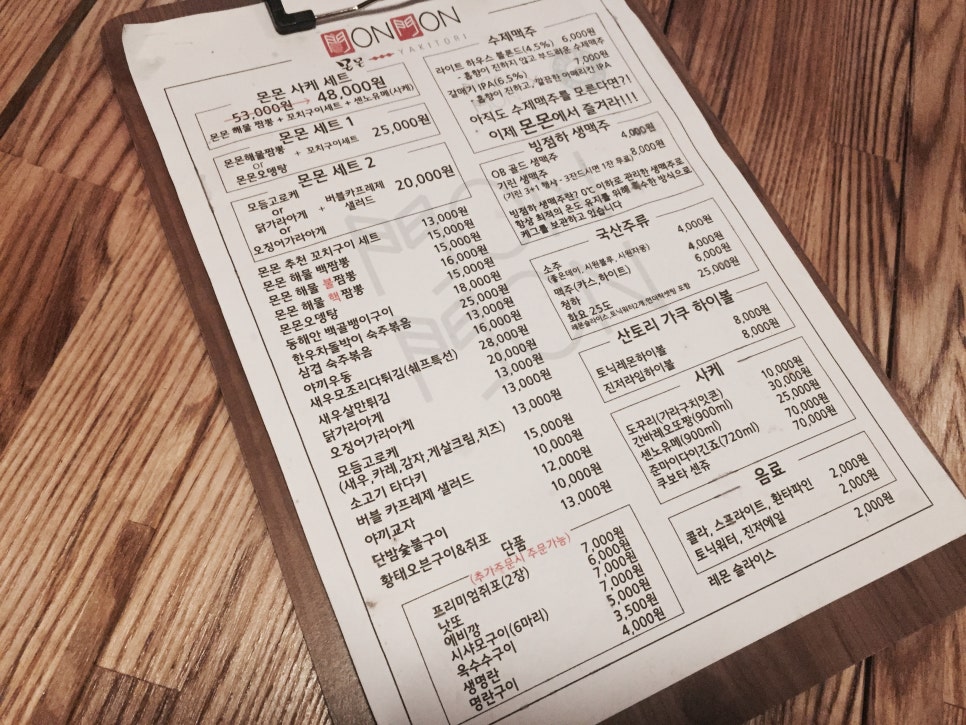 門ON門ON
YAKITORI
몬몬
몬몬 사케 세트
53,000원 → 48,000원
몬몬 해물 짬뽕 + 꼬치구이세트 + 센노유메(사케)
몬몬 세트 1
몬몬해물짬뽕
or
몬몬오뎅탕
+ 꼬치구이세트
25,000원
몬몬 세트 2
모듬고로케
or
닭가라아게
or
오징어가라아게
+
버블카프레제
샐러드
20,000원
몬몬 추천 꼬치구이 세트 13,000원
몬몬 해물 백짬뽕 15,000원
몬몬 해물 불짬뽕 15,000원
몬몬 해물 핵짬뽕 16,000원
몬몬오뎅탕 15,000원
동해안 백골뱅이구이 18,000원
한우차돌박이 숙주볶음 25,000원
삼겹 숙주볶음 13,000원
야끼우동 16,000원
새우모조리다튀김(쉐프특선) 28,000원
새우살만튀김 20,000원
닭가라아게 13,000원
오징어가라아게 13,000원
모듬고로케 13,000원
(새우,카레,감자,게살크림,치즈)
소고기 타다키 15,000원
버블 카프레제 샐러드 10,000원
야끼교자 12,000원
단밤숯불구이 10,000원
황태오븐구이&쥐포 13.000원
단품
(추가주문시 주문가능)
프리미엄쥐포(2장) 7,000원
낫또 6,000원
에비깡 7,000원
시샤모구이(6마리) 7,000원
옥수수구이 5,000원
생명란 3,500원
명란구이 4,000원
수제맥주
라이트 하우스 블론드(4.5%) 6,000원
- 홉향이 진하지 않고 부드러운 수제맥주
갈매기 IPA(6.5%) 7,000원
- 홉향이 진하고, 깔끔한 아메리칸 IPA
아직도 수제맥주를 모른다면?!
이제 몬몬에서 즐겨라!!!
빙점하 생맥주
OB 골드 생맥주 4,000원
기린 생맥주 8,000원
(기린 3+1 행사 - 3잔드시면 1잔 무료)
빙점하 생맥주란? 0℃ 이하로 관리한 생맥주로
항상 최적의 온도 유지를 위해 특수한 방식으로
케그를 보관하고 있습니다
국산주류
소주 4,000원
(좋은데이, 시원블루, 시원자몽)
맥주(카스, 하이트) 4,000원
청하 6,000원
화요 25도 25,000원
레몬슬라이스,토닉워터2개,언더락셋팅 포함
산토리 가쿠 하이볼
토닉레몬하이볼 8,000원
진저라임하이볼 8,000원
사케
도꾸리(가라구치잇콘) 10,000원
간바레오또짱(900ml) 30,000원
센노유메(900ml) 25,000원
준마이다이긴죠(720ml) 70,000원
쿠보타 센쥬 70,000원
음료
콜라, 스프라이트, 환타파인 2,000원
토닉워터, 진저에일 2,000원
레몬 슬라이스 2,000원